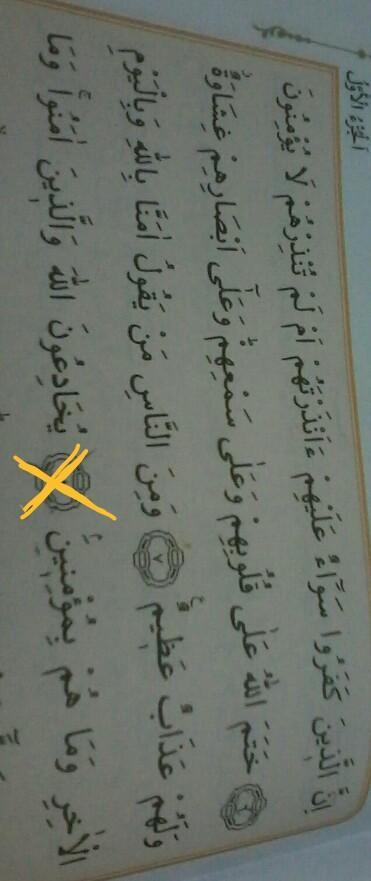 اَلْجُزْءُ الْاَوَّلُ
اِنَّ الَّذِينَ كَفَرُوا سَوَٓاءٌ عَلَيْهِمْ ءَاَنْذَرْتَهُمْ اَمْ لَمْ تُنْذِرْهُمْ لَا يُؤْمِنُونَ
٦ خَتَمَ اللّٰهُ عَلٰى قُلُوبِهِمْ وَعَلٰى سَمْعِهِمْ ۜ وَعَلٰٓى اَبْصَارِهِمْ غِشَاوَةٌ
وَلَهُمْ عَذَابٌ عَظِيمٌ ٧ وَمِنَ النَّاسِ مَنْ يَقُولُ اٰمَنَّا بِاللّٰهِ وَبِالْيَوْمِ
الْاٰخِرِ وَمَا هُمْ بِمُؤْمِنِينَ يُخَادِعُونَ اللّٰهَ وَالَّذِينَ اٰمَنُوا ۚ وَمَا